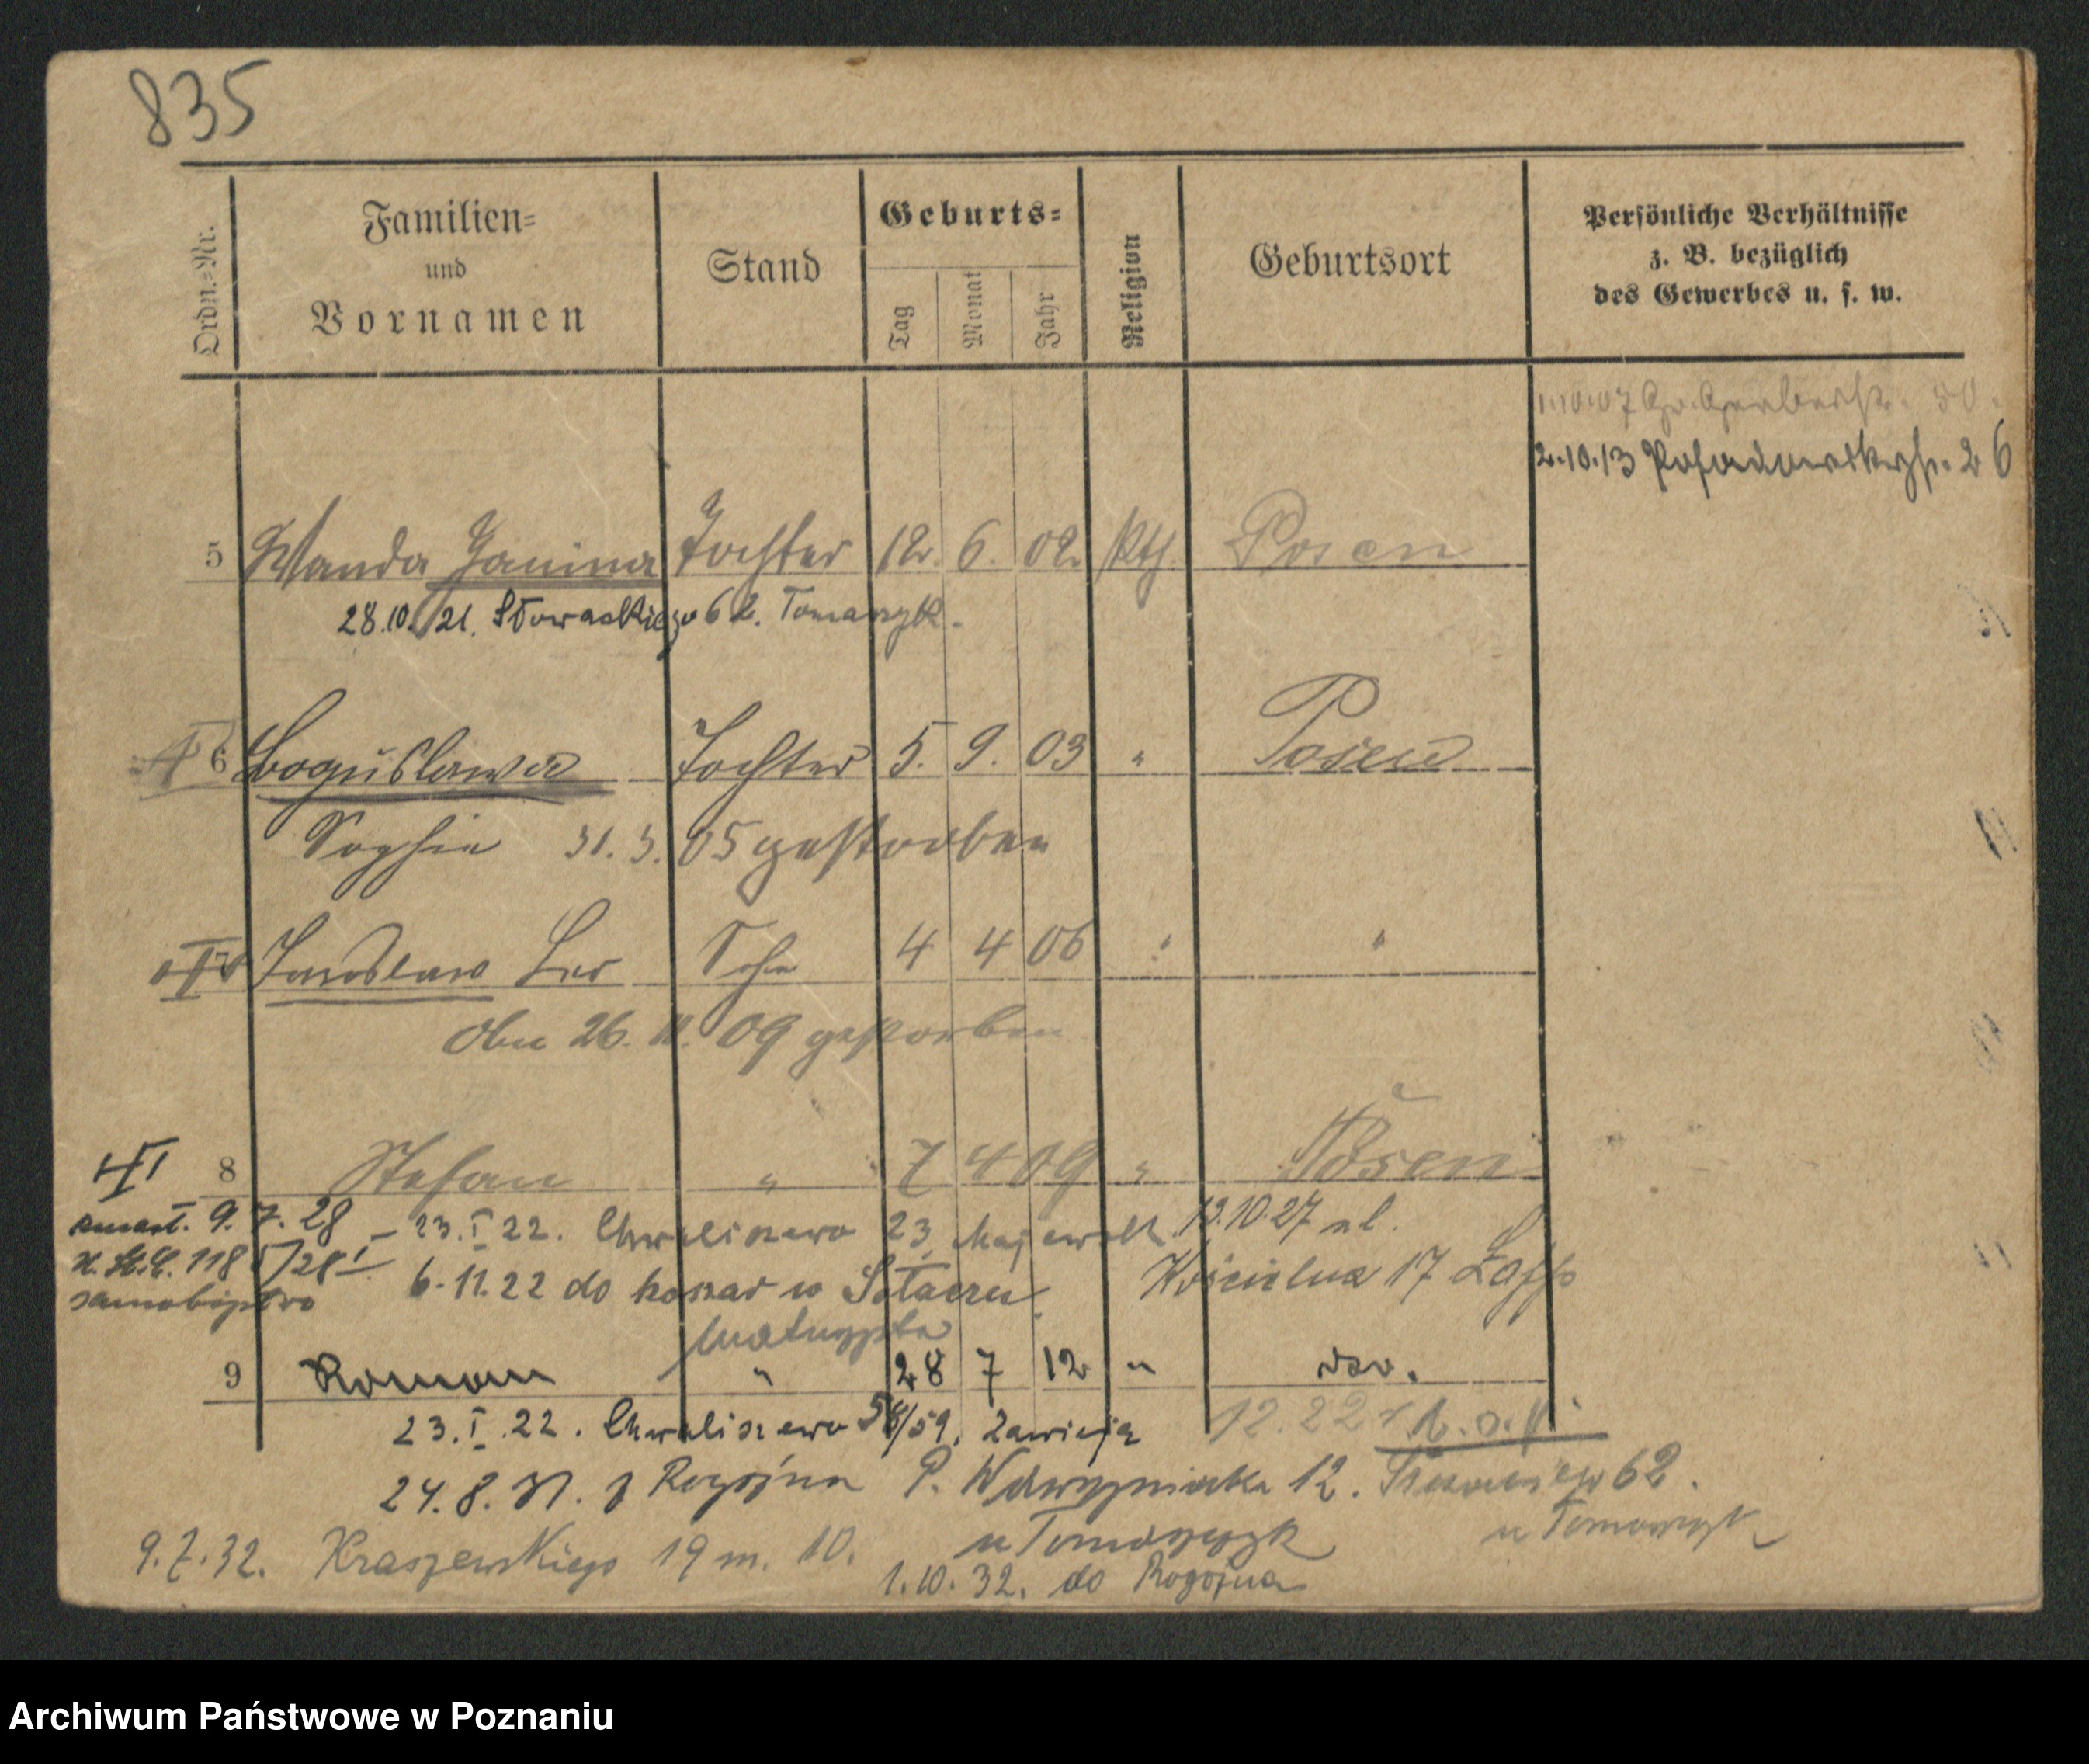 835
Ordn.-Nr.
Familien-
und
Vornamen
Stand
Geburts-
Tag
Monat
Jahr
Religion
Geburtsort
Persönliche Verhältnisse
z. B. bezüglich
des Gewerbes u. s. w.
1.10.07 Gr. Gerberstr. 50.
2.10.13 Posadowskystr. 26
5 Wanda Janina Tochter 12. 6. 02 kth. Posen
28.10.21. Słowackiego 62. Tomaszyk.
6 Boguslawa Tochter 5. 9. 03 " Posen
Sophie 31. 3. 05 gestorben
7 Jaroslaw Leo Sohn 4 4 06 " "
26. 11. 09 gestorben
8 Stefan " 7 4 09 " Posen
zmarł. 9.7.28 – 23.I.22. Chwaliszewo 23 12.10.27 ul.
1185/28 6.11.22 do koszar w Sołaczu Kościelna 17
samobójstwo
9 Roman " 28 7 12 " dso.
23.I.22. Chwaliszewo 58/59. Zawieja 12.22
24.8. Rogoźna P. Wawrzyniaka 12. 62.
u Tomaszyk
9.7.32. Kraszewskiego 19 m. 10. u Tomaszczyk
1.10.32. do Rogoźna
Archiwum Państwowe w Poznaniu